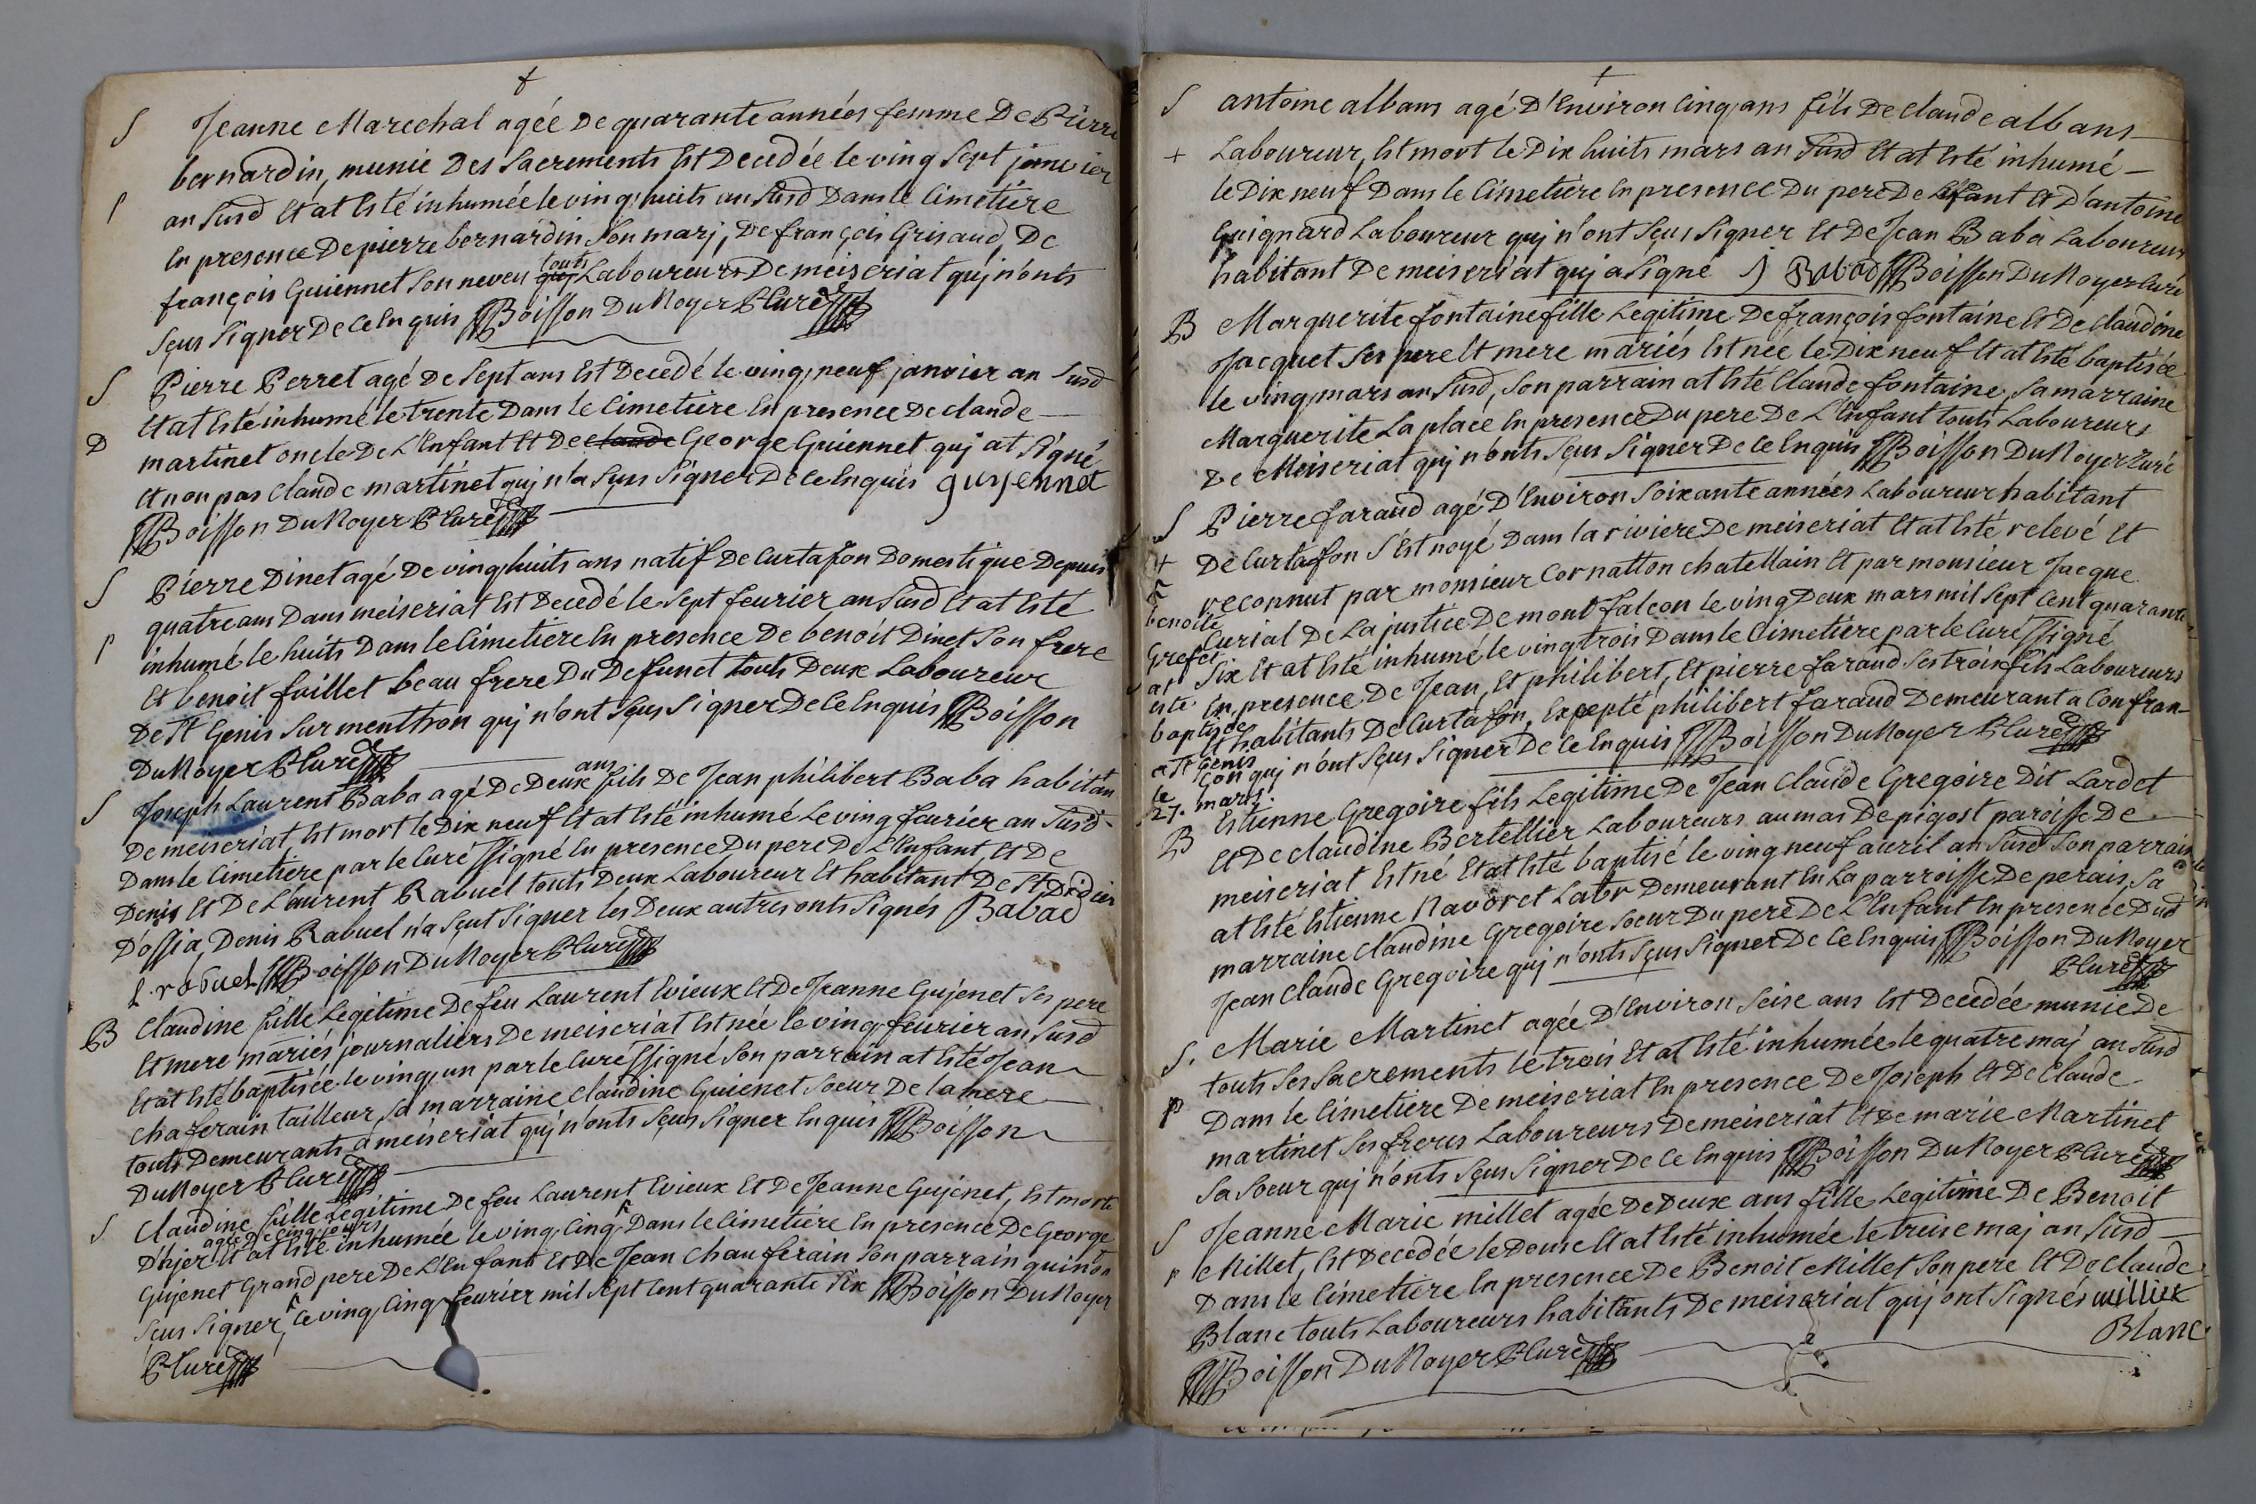 S Jeanne Marechal agée De quarante années femme De Pierre
bernardin, munie Des Sacrements Est Decedée le ving Sept janvier
an susd Et at Esté inhumée le ving huits an susd Dans le Cimetiere
En presence De pierre bernardin Son marj, De françois Grisaud, De
françois Guiennet Son neveu touts Laboureurs De meiseriat quj n'onts
Sçus Signer De Ce Enquis Boisson Du Noyer P Curé
S Pierre Perret agé De Sept ans Est Decedé le ving neuf janvier an susd
Et at Esté inhumé le trente Dans le Cimetiere En presence De claude
D martinet oncle De L'Enfant Et De claude George Guiennet quj at Signé
Et non pas Claude martinet quj n'a Sçus Signer De Ce Enquis guyennet
Boisson Du Noyer P Curé
S Pierre Dinet agé De ving huits ans natif De Curtafon Domestique Depuis
quatre ans Dans meiseriat Est Decedé le Sept feurier an susd Et at Esté
inhumé le huits Dans le Cimetiere En presence De benoit Dinet Son frere
Et benoit fuillet beau frere Du Defunct touts Deux Laboureur
De St Genis Sur menthon quj n'ont Sçus Signer De Ce Enquis Boisson
Du Noyer P Curé
S Joseph Laurent Baba agé De Deux ans fils De Jean philibert Baba habitan
De meiseriat, Est mort le Dix neuf Et at Esté inhumé Le ving feurier an Susd
Dans le Cimetiere par le Curé ssigné En presence Du pere De L'Enfant, Et De
Denis Et De Laurent Rabuel touts Deux Laboureur Et habitant De St Didier
D'ossia, Denis Rabuel n'a Sçut Signer les Deux autres onts Signés Babad
l. rabuel Boisson Du Noyer P Curé
B Claudine fille Legitime De feu Laurent Evieux Et De Jeanne Gujenet Ses pere
Et mere mariés journaliers De meiseriat Est née le ving feurier an Susd
Et at Esté baptisée le ving un par le Curé ssigné Son parrain at Esté Jean
chaferain tailleur, Sa marraine Claudine Guienet Soeur De la mere
touts Demeurants a meiseriat quj n'onts Sçus Signer Enquis Boisson
Du Noyer P Curé
S Claudine fille Legitime De feu Laurent Evieux Et De Jeanne Gujenet, Est morte
D'hjer Et at Esté inhumée le ving Cinq Dans le Cimetiere En presence De George
agée De Cinq jours
Gujenet Grand pere De L'Enfant Et De Jean Chauferain Son parrain qui n'on
Sçus Signer, Ce ving Cinq feurier mil Sept Cent quarante Six Boisson Du Noyer
P Curé
S antoine albans agé D'Environ Cinq ans fils De Claude albans
+ Laboureur, Est mort le Dix huits mars an susd Et at Esté inhumé
le Dix neuf Dans le Cimetiere En presence Du pere De L'Efant Et D'antoine
Guignard Laboureur quj n'ont Sçus Signer Et De Jean Baba Laboureur
habitant De meiseriat quj a Signé J Babad Boisson Du Noyer Curé
B Marguerite fontaine fille Legitime De françois fontaine Et De Claudine
Jacquet Ses pere Et mere mariés Est née le Dix neuf Et at Esté baptisée
le ving mars an Susd, Son parrain at Esté Claude fontaine, Sa marraine
Marguerite La place En presence Du pere De L'Enfant touts Laboureurs
De Meiseriat quj n'onts Sçus Signer De Ce Enquis Boisson Du Noyer Curé
S Pierre faraud agé D'Environ Soixante années Laboureur habitant
+ De Curtafon S'Est noyé Dans la riviere De meiseriat Et at Esté relevé Et
reconnut par monsieur Cornatton chatellain Et par monsieur Jacque
Curial De La justice De mont falcon le ving Deux mars mil Sept Cent quarante
Six Et at Esté inhumé le ving trois Dans le Cimetiere par le Curé ssigné
En presence De Jean, Et philibert, Et pierre faraud Ses trois fils Laboureurs
Et habitants De Curtafon, Excepté philibert faraud Demeurant a Confran-
çon quj n'ont Sçus Signer De Ce Enquis Boisson Du Noyer P Curé
benoite
Grefet
at
esté
baptisée
a St Genis
le
27. mars
B Estienne Gregoire fils Legitime De Jean Claude Gregoire Dit Lardet
Et De Claudine Bertellier Laboureurs au mas De pigost paroisse De
meiseriat Est né Et at Esté baptisé le ving neuf auril an Susd Son parrain
at Esté Estienne Navoret Labr Demeurant En La parroisse De perais, Sa
marraine Claudine Gregoire Soeur Du pere De L'Enfant En presence Dud
Jean Claude Gregoire quj n'onts Sçus Signer De Ce Enquis Boisson Du Noyer
P Curé
S. Marie Martinet agée D'Environ Seise ans Est Decedée munie De
touts Ses Sacrements le trois Et at Esté inhumée le quatre maj an susd
p Dans le Cimetiere De meiseriat En presence De Joseph Et De Claude
martinet Ses freres Laboureurs De meiseriat Et De marie Martinet
Sa Soeur quj n'onts Sçus Signer De Ce Enquis Boisson Du Noyer P Curé
S Jeanne Marie millet agée De Deux ans fille Legitime De Benoit
p Millet, Est Decedée le Douse Et at Esté inhumée le treise maj an susd
Dans le Cimetiere En presence De Benoit Millet Son pere Et De Claude
Blanc touts Laboureurs habitants De meiseriat quj ont Signés milliet
Blanc
Boisson Du Noyer P Curé